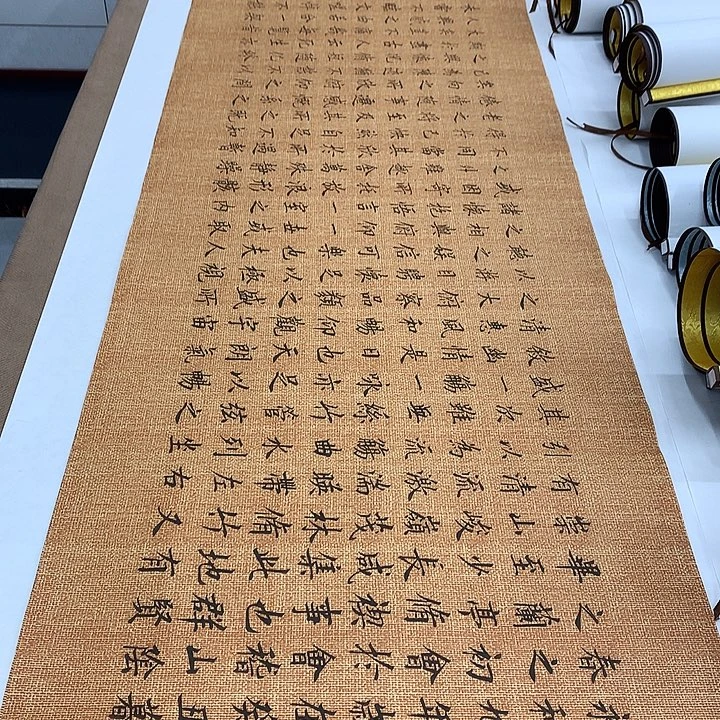 永和九年歲在癸丑暮
春之初會於會稽山陰
之蘭亭脩禊事也群賢
畢至少長咸集此地有
崇山峻嶺茂林脩竹又
有清流激湍暎帶左右
引以為流觴曲水列坐
其次雖無絲竹管弦之
盛一觴一詠亦足以暢
敘幽情是日也天朗氣
清惠風和暢仰觀宇宙
之大俯察品類之盛所
以游目騁懷足以極視
聽之娛信可樂也夫人
之相與俯仰一世或取
諸懷抱悟言一室之內
或因寄所託放浪形骸
之外雖趣舍萬殊靜躁
不同當其欣於所遇暫
得於己快然自足不知
老之將至及其所之既